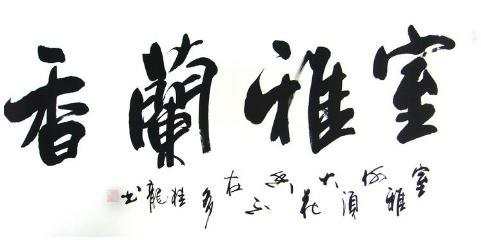 室雅蘭香
室雅
何須
大花
香不
在多
桂龍书